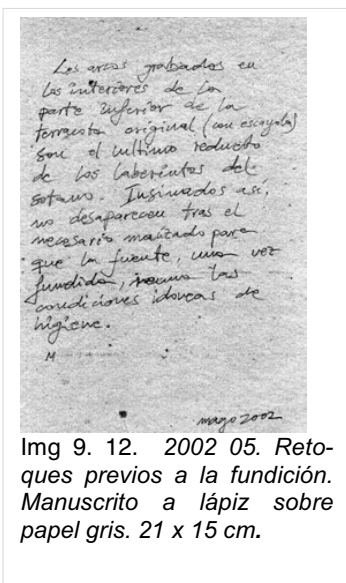 Los arcos grabados en
los interiores de la
parte inferior de la
terracota original (con escayola)
son el ultimo reducto
de los laberintos del
sotano. Insinuados así,
no desaparecen tras el
necesario matizado para
que la fuente, una vez
fundida, reuna las
condiciones idoneas de
higiene.
M
mayo 2002
Img 9. 12. 2002 05. Reto-
ques previos a la fundición.
Manuscrito a lápiz sobre
papel gris. 21 x 15 cm.